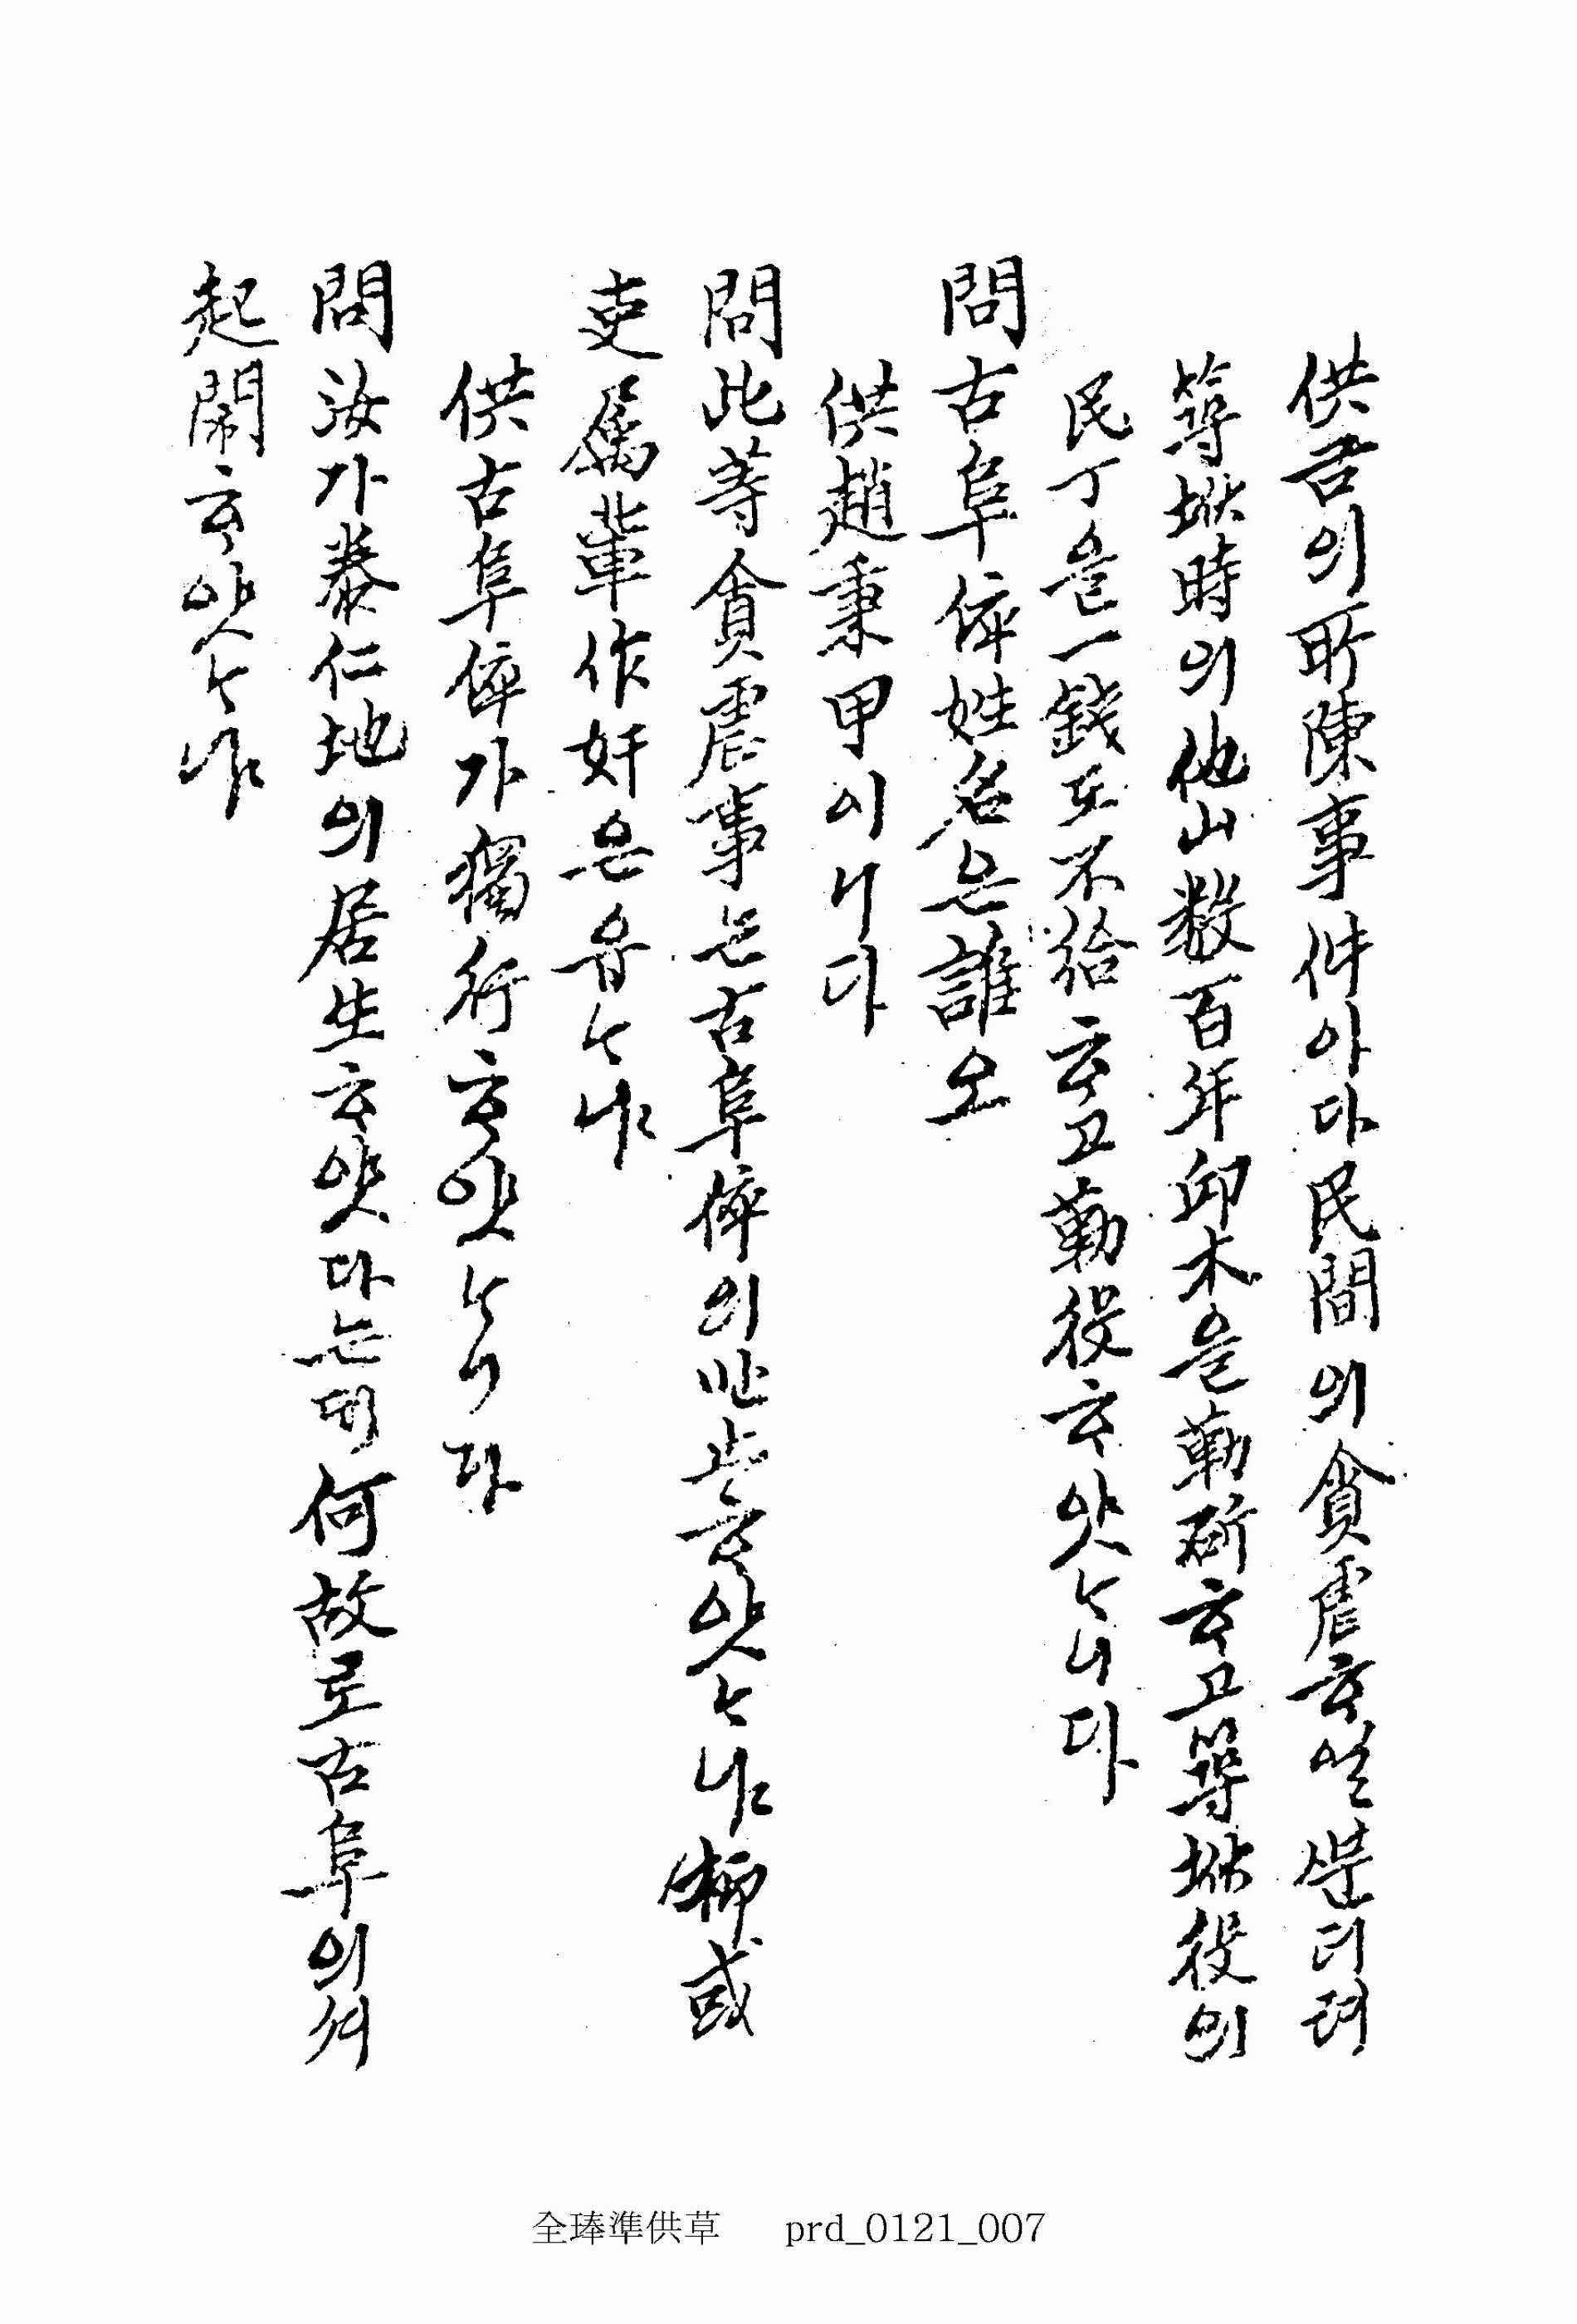 供ᄒᆞᆷ의 所陳事件이다 民間의 貪虐ᄒᆞᆯᄲᅮᆫ더려
築洑時의 他山數百年邱木을 勒斫ᄒᆞ고 築洑役의
民丁을 一錢도 不給ᄒᆞ고 勒役ᄒᆞ얏ᄂᆞ니다
問古阜倅姓名은 誰오
供趙秉甲이니다
問此等貪虐事ᄂᆞᆫ 古阜倅의 ᄲᅮᆫ止ᄒᆞ얏ᄂᆞ냐 抑或
吏屬輩作奸은 업ᄂᆞ냐
供古阜倅가 獨行ᄒᆞ얏ᄂᆞ니다
問汝가 泰仁地의 居生ᄒᆞ얏다ᄂᆞᆫ데 何故로 古阜의셔
起鬧ᄒᆞ얏ᄂᆞ냐
全琫準供草 prd_0121_007